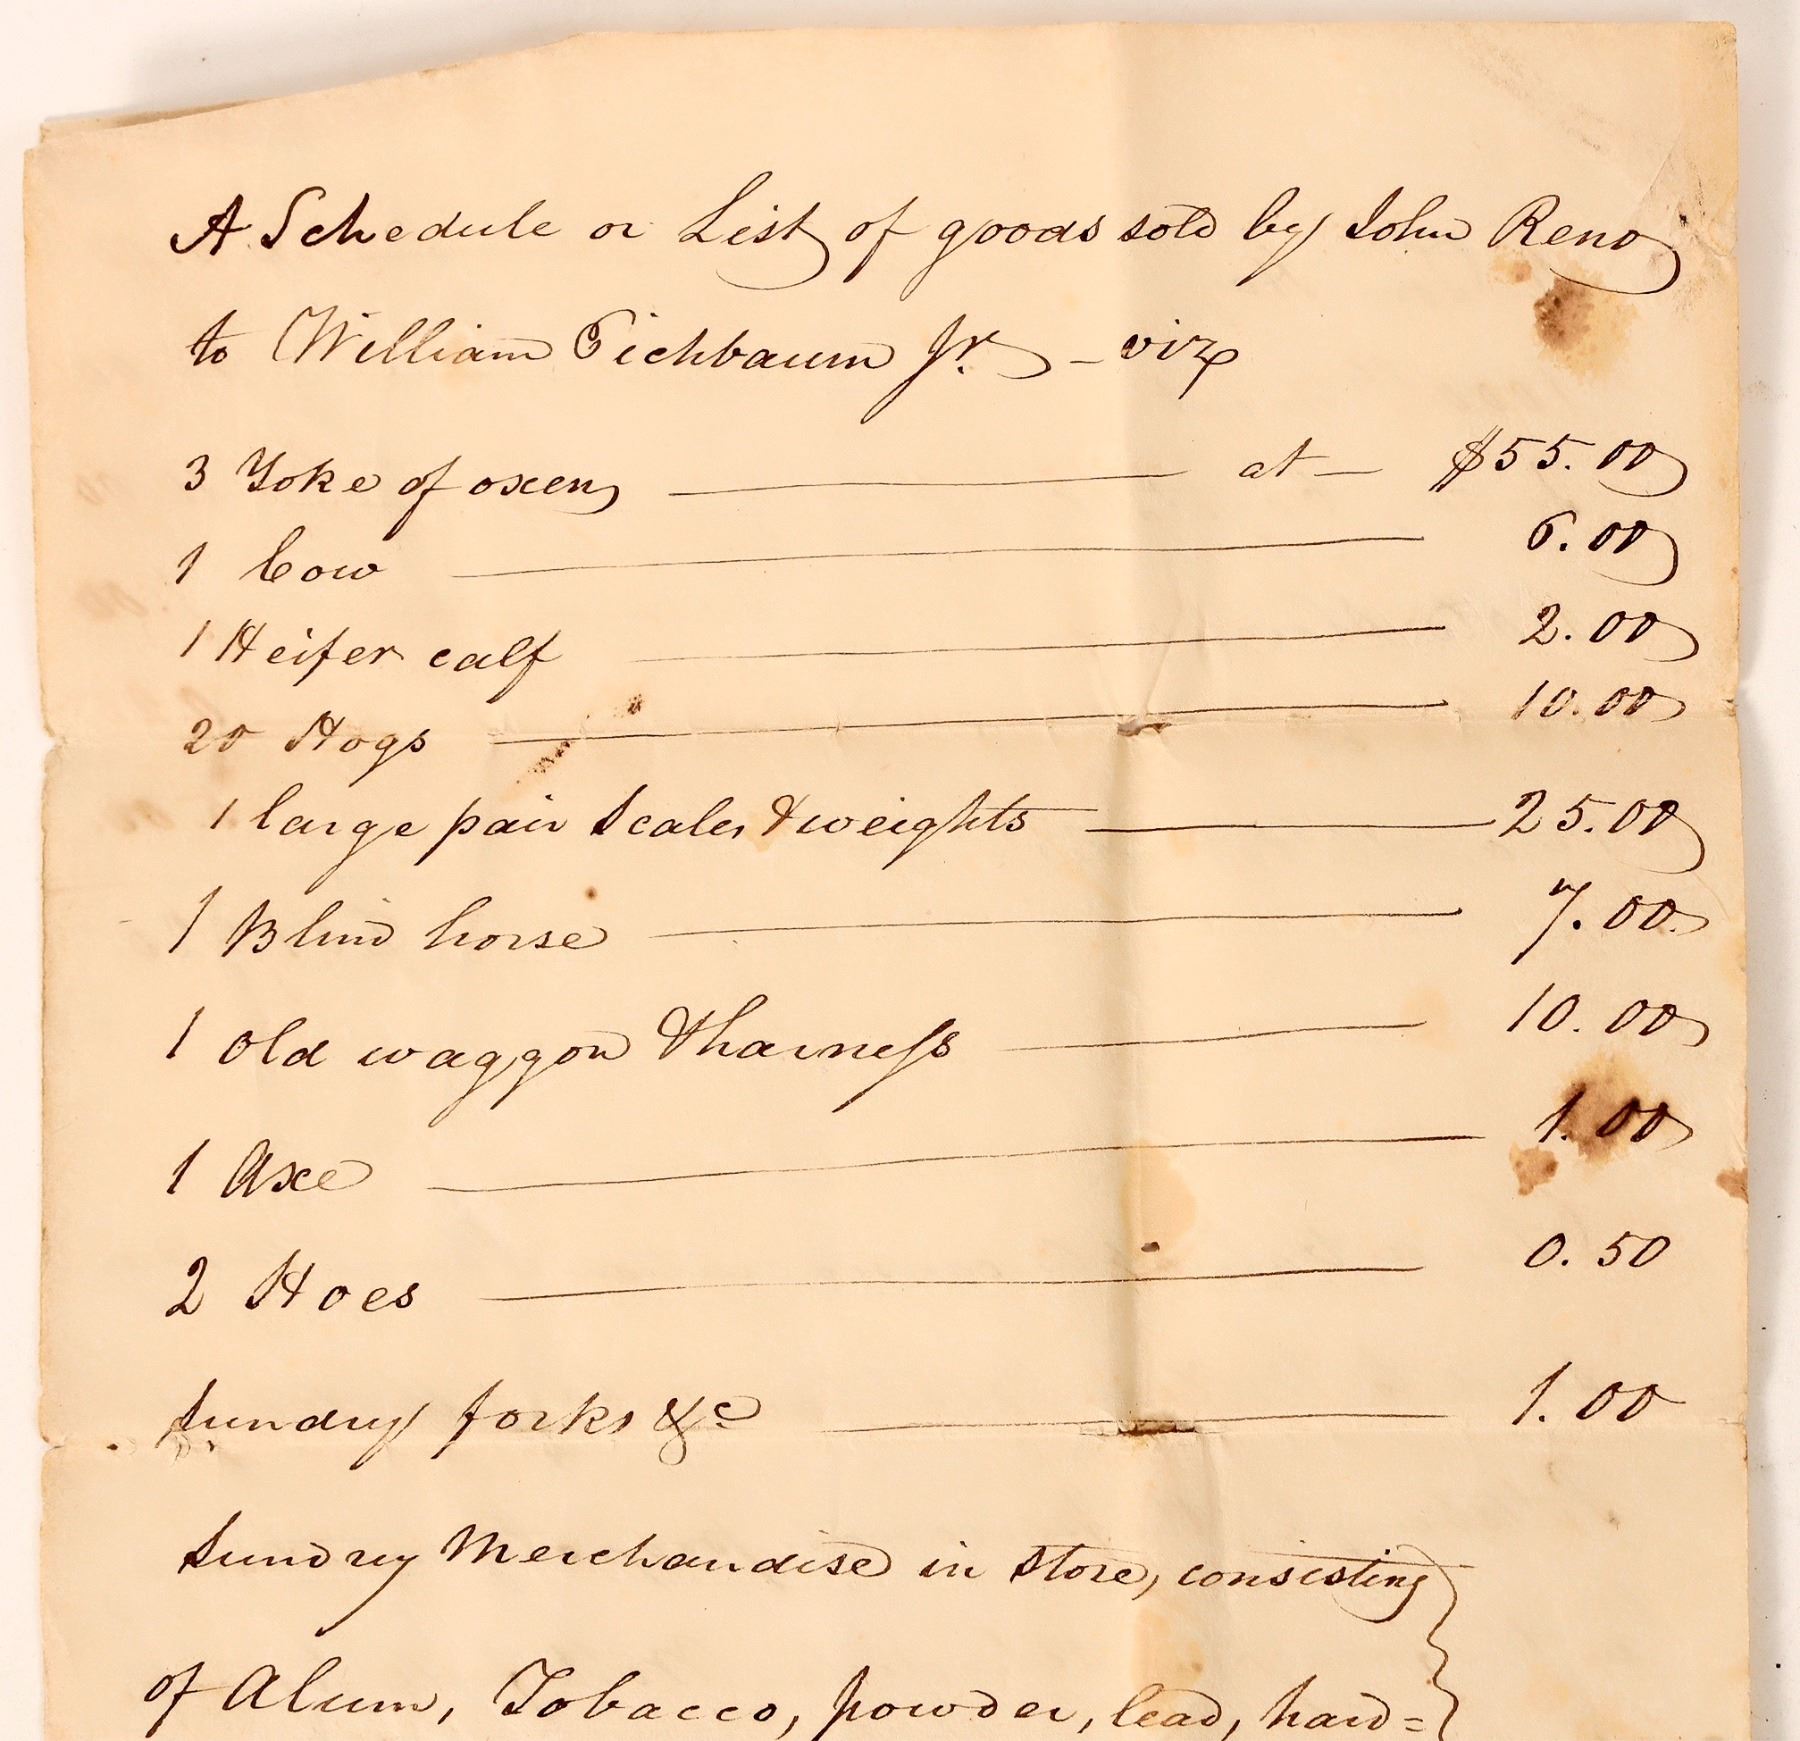 A Schedule or List of goods sold by John Reno
to William Eichbaum Jr. - viz
3 Yoke of oxen — at — $55.00
1 Cow — 6.00
1 Heifer calf — 2.00
20 Hogs — 10.00
1 large pair Scales & weights — 25.00
1 Blind horse — 7.00
1 old waggon & harness — 10.00
1 Axe — 1.00
2 Hoes — 0.50
Sundry forks &c — 1.00
Sundry Merchandise in store, consisting
of Alum, Tobacco, powder, lead, hard=